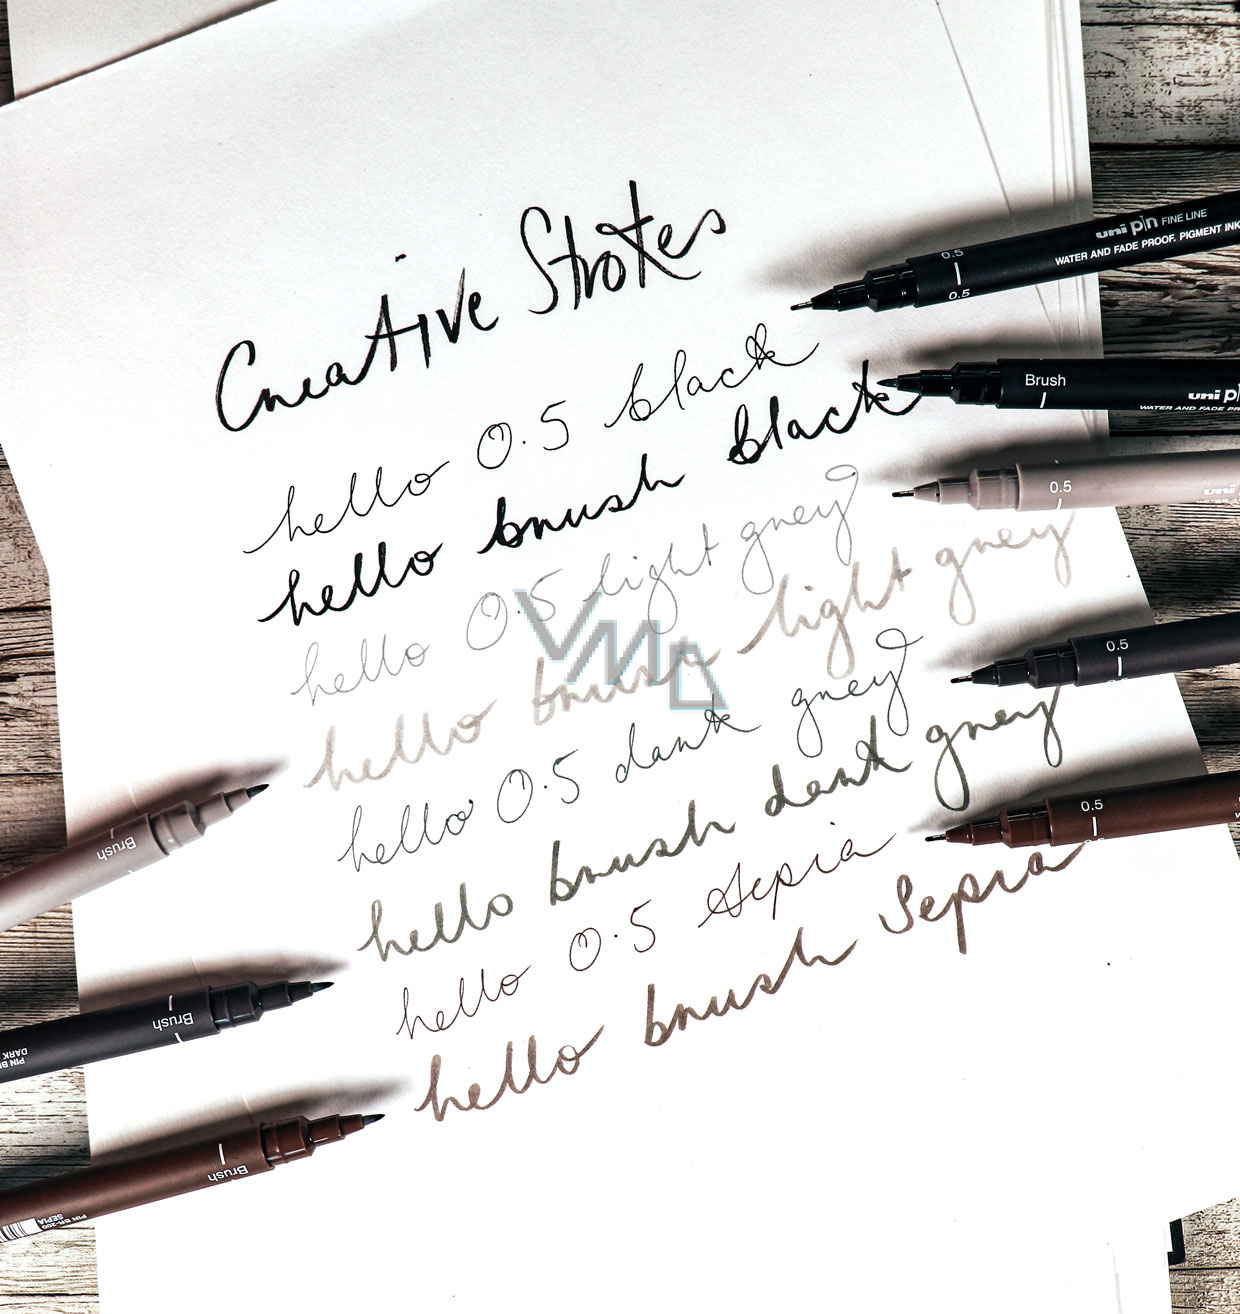 Creative Strokes
hello 0.5 black
hello brush black
hello 0.5 light grey
hello brush light grey
hello 0.5 dark grey
hello brush dark grey
hello 0.5 Sepia
hello brush Sepia
uni pin FINE LINE
WATER AND FADE PROOF, PIGMENT INK
0.5
0.5
Brush
uni pin
WATER AND FADE PR
0.5
uni
0.5
0.5
Brush
Brush
PIN BR
DARK
Brush
PIN BR-200
SEPIA
VMD